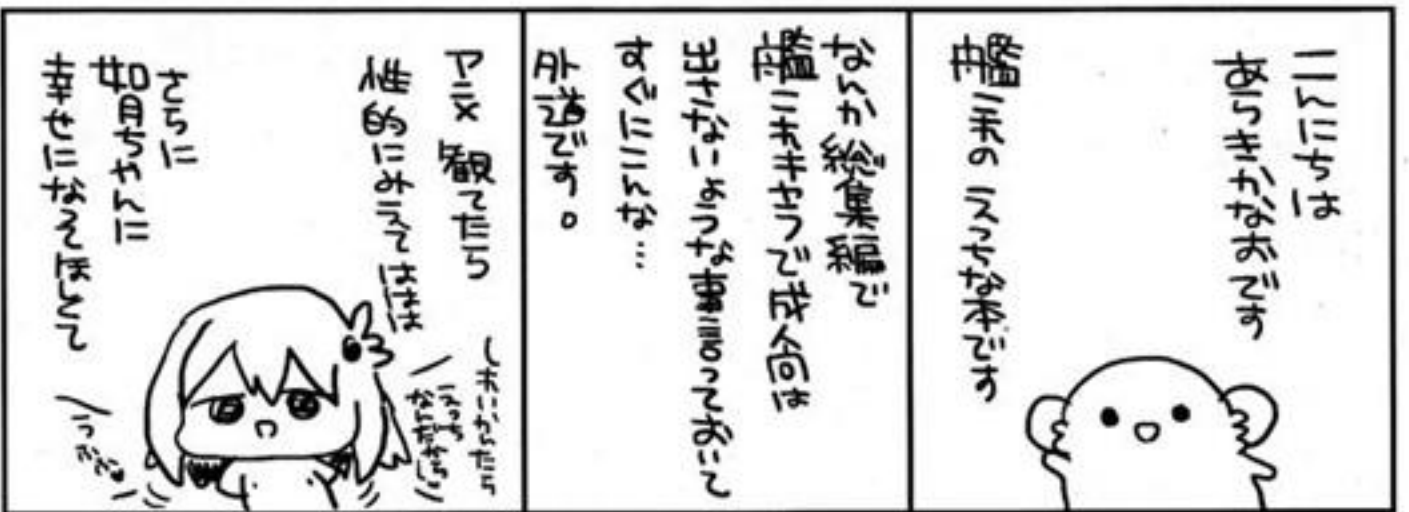 こんにちは
あらきかなおです
艦これの えっちな本です
なんか総集編で
艦これキャラで成人向は
出さないような事言っておいて
すぐにこんな…
外道です。
アニメ 観てたら
性的にみえてはは
さらに
如月ちゃんに
幸せになってほしくて
うふふ♥